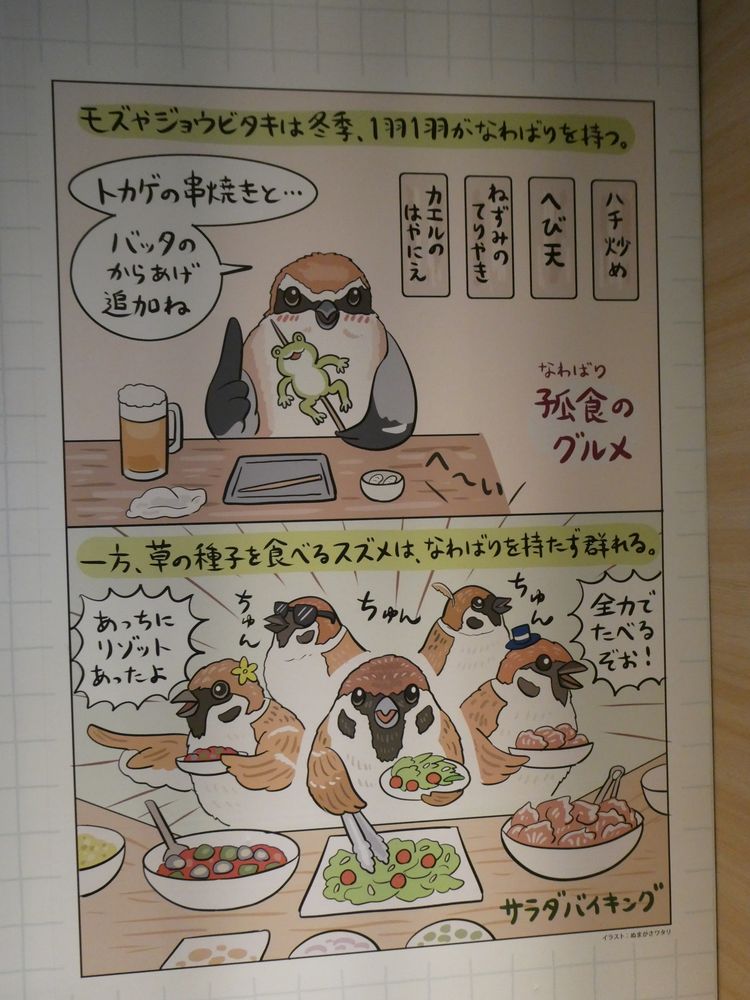 モズやジョウビタキは冬季、1羽1羽がなわばりを持つ。
トカゲの串焼きと…
バッタの
からあげ
追加ね
ハチ炒め
へび天
ねずみの
てりやき
カエルの
はやにえ
なわばり
孤食の
グルメ
へ〜い
一方、草の種子を食べるスズメは、なわばりを持たず群れる。
あっちに
リゾット
あったよ
ちゅん
ちゅん
ちゅん
全力で
たべる
ぞぉ!
サラダバイキング
イラスト:ぬまがさワタリ